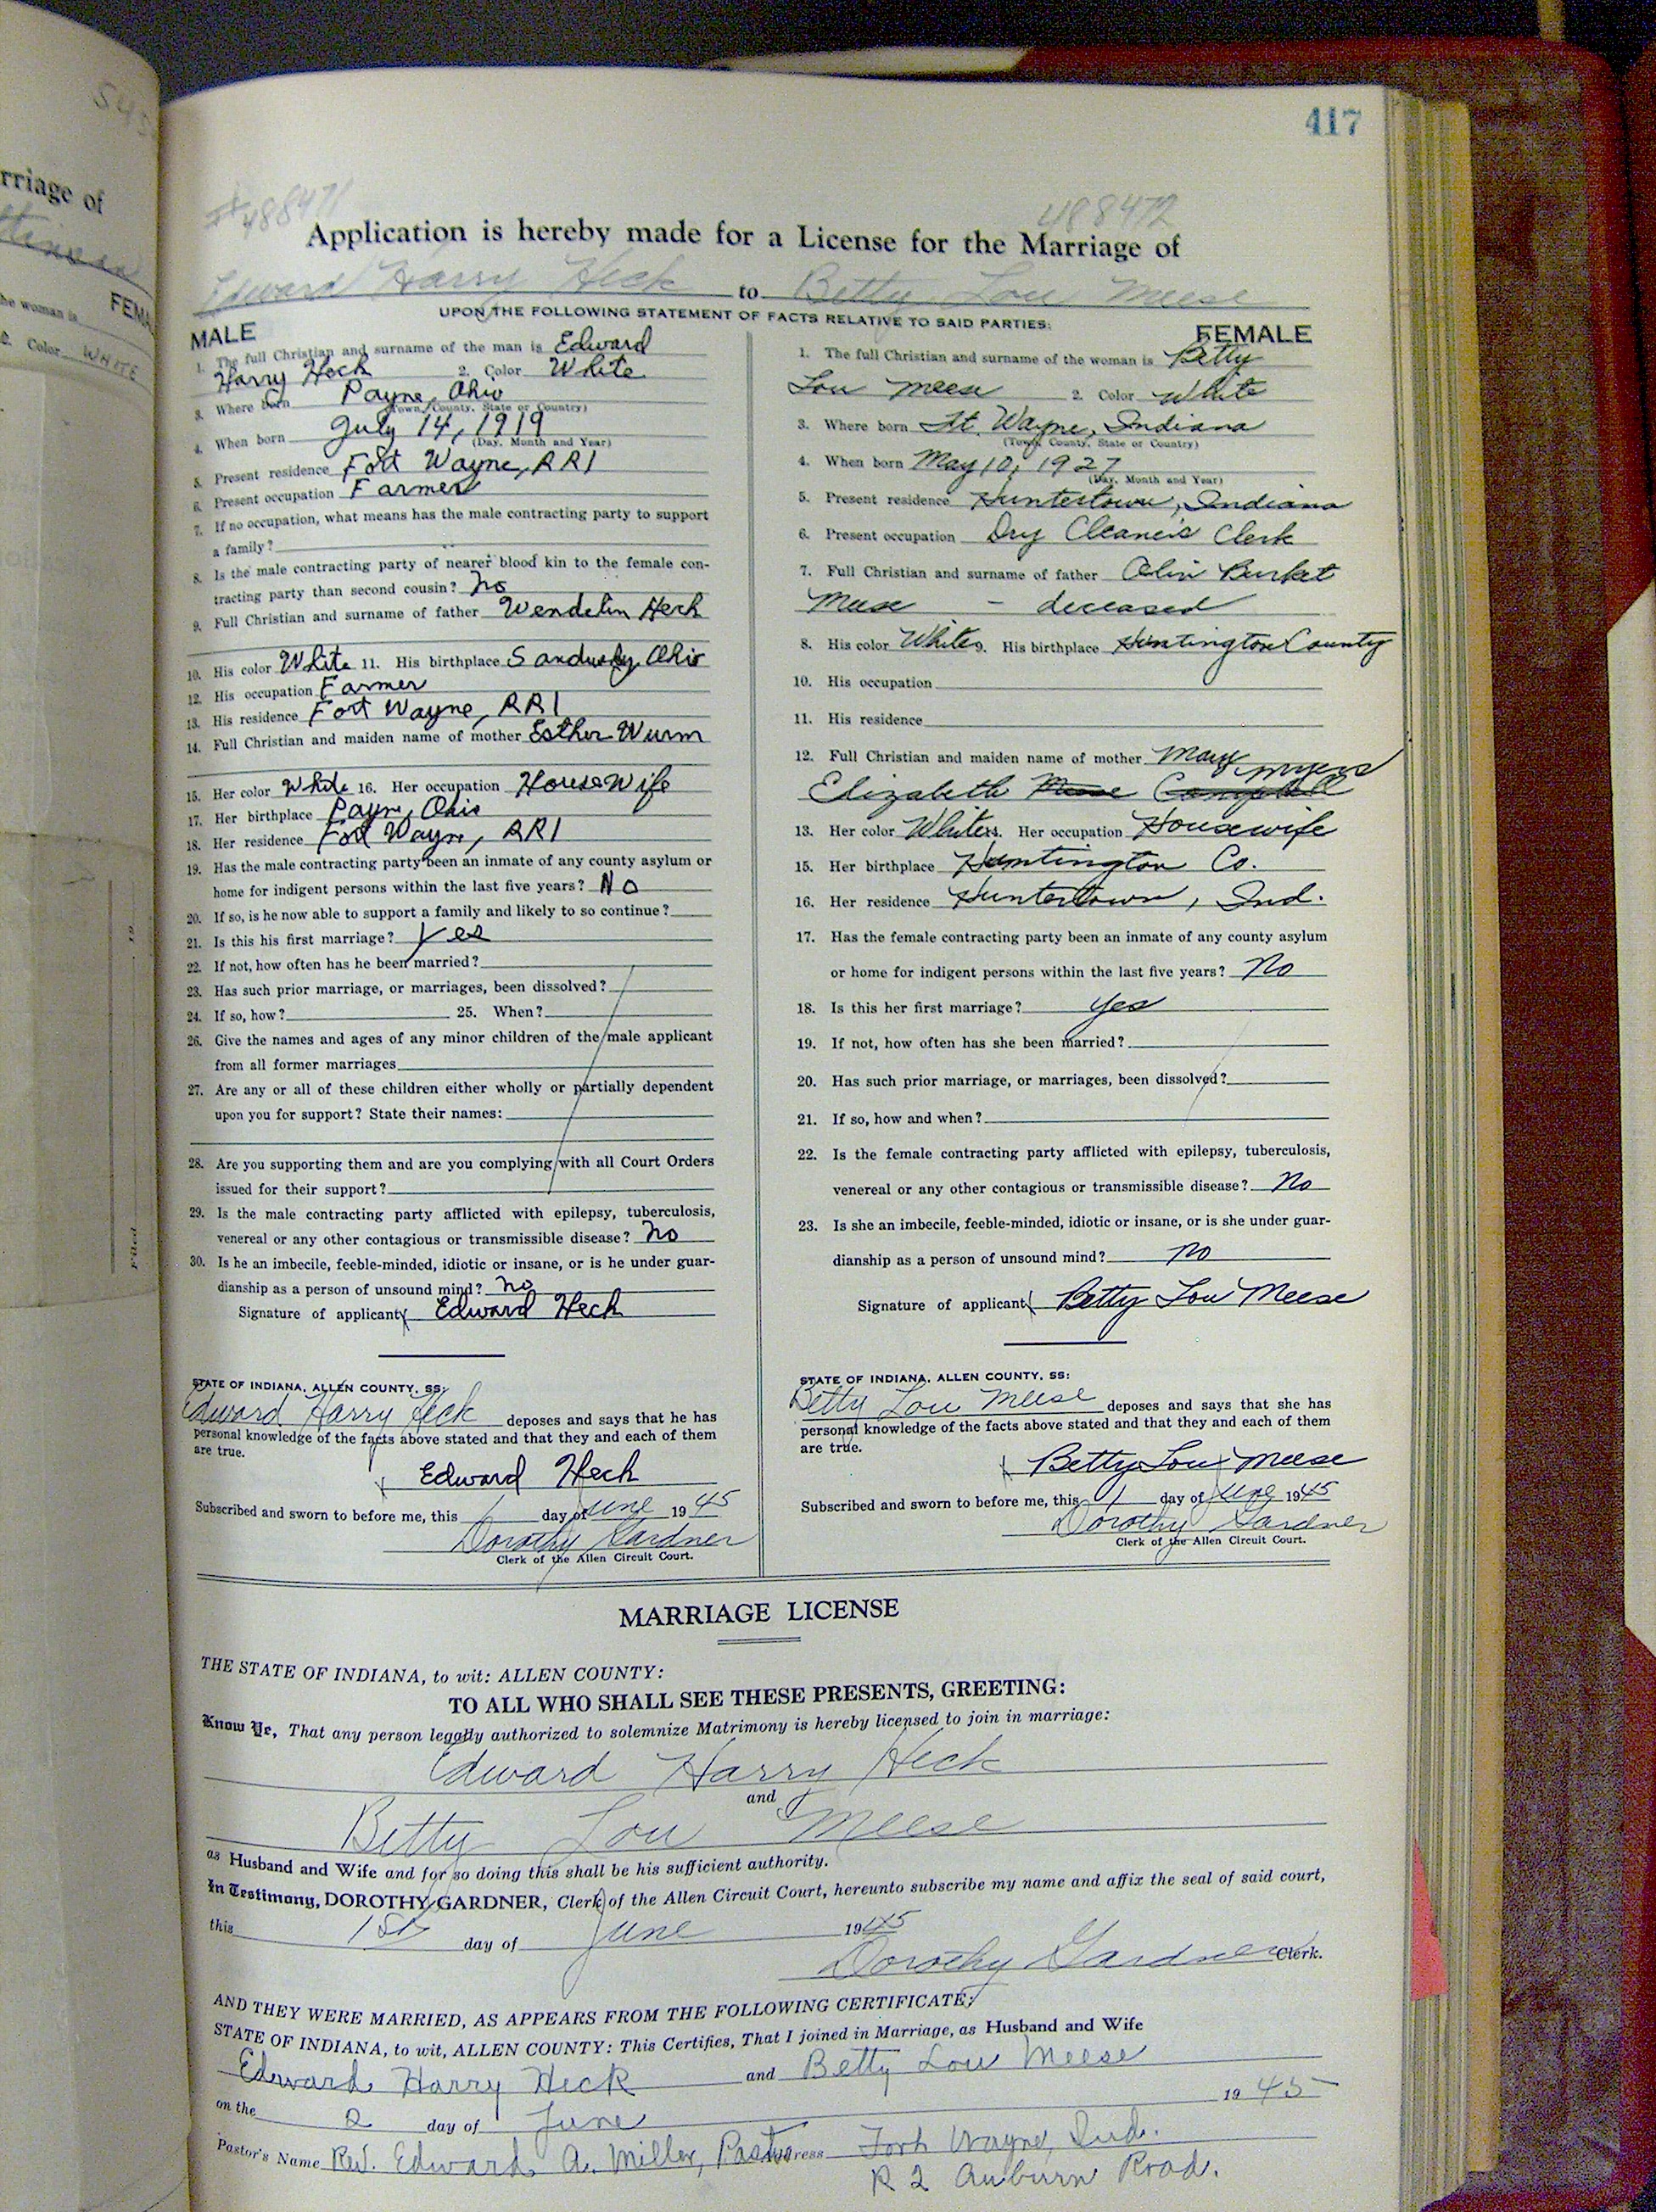 417
#488471
488472
Application is hereby made for a License for the Marriage of
Edward Harry Heck to Betty Lou Meese
UPON THE FOLLOWING STATEMENT OF FACTS RELATIVE TO SAID PARTIES:
MALE
1. The full Christian and surname of the man is Edward
Harry Heck 2. Color White
3. Where born Payne, Ohio
(Town, County, State or Country)
4. When born July 14, 1919
(Day, Month and Year)
5. Present residence Fort Wayne, RR1
6. Present occupation Farmer
7. If no occupation, what means has the male contracting party to support
a family?
8. Is the male contracting party of nearer blood kin to the female con-
tracting party than second cousin? No
9. Full Christian and surname of father Wendelin Heck
10. His color White 11. His birthplace Sandusky, Ohio
12. His occupation Farmer
13. His residence Fort Wayne, RR1
14. Full Christian and maiden name of mother Esther Wurm
15. Her color White 16. Her occupation HouseWife
17. Her birthplace Payne, Ohio
18. Her residence Fort Wayne, RR1
19. Has the male contracting party been an inmate of any county asylum or
home for indigent persons within the last five years? No
20. If so, is he now able to support a family and likely to so continue?
21. Is this his first marriage? Yes
22. If not, how often has he been married?
23. Has such prior marriage, or marriages, been dissolved?
24. If so, how? 25. When?
26. Give the names and ages of any minor children of the male applicant
from all former marriages
27. Are any or all of these children either wholly or partially dependent
upon you for support? State their names:
28. Are you supporting them and are you complying with all Court Orders
issued for their support?
29. Is the male contracting party afflicted with epilepsy, tuberculosis,
venereal or any other contagious or transmissible disease? No
30. Is he an imbecile, feeble-minded, idiotic or insane, or is he under guar-
dianship as a person of unsound mind? No
Signature of applicant Edward Heck
STATE OF INDIANA, ALLEN COUNTY, SS:
Edward Harry Heck deposes and says that he has
personal knowledge of the facts above stated and that they and each of them
are true.
Edward Heck
Subscribed and sworn to before me, this 1 day of June 1945
Dorothy Gardner
Clerk of the Allen Circuit Court.
FEMALE
1. The full Christian and surname of the woman is Betty
Lou Meese 2. Color White
3. Where born Ft. Wayne, Indiana
(Town, County, State or Country)
4. When born May 10, 1927
(Day, Month and Year)
5. Present residence Huntertown, Indiana
6. Present occupation Dry Cleaner's Clerk
7. Full Christian and surname of father Olin Burket
Meese - deceased
8. His color White 9. His birthplace Huntington County
10. His occupation
11. His residence
12. Full Christian and maiden name of mother Mary
Elizabeth Meese Campbell Myers
13. Her color White 14. Her occupation Housewife
15. Her birthplace Huntington Co.
16. Her residence Huntertown, Ind.
17. Has the female contracting party been an inmate of any county asylum
or home for indigent persons within the last five years? No
18. Is this her first marriage? Yes
19. If not, how often has she been married?
20. Has such prior marriage, or marriages, been dissolved?
21. If so, how and when?
22. Is the female contracting party afflicted with epilepsy, tuberculosis,
venereal or any other contagious or transmissible disease? No
23. Is she an imbecile, feeble-minded, idiotic or insane, or is she under guar-
dianship as a person of unsound mind? No
Signature of applicant Betty Lou Meese
STATE OF INDIANA, ALLEN COUNTY, SS:
Betty Lou Meese deposes and says that she has
personal knowledge of the facts above stated and that they and each of them
are true.
Betty Lou Meese
Subscribed and sworn to before me, this 1 day of June 1945
Dorothy Gardner
Clerk of the Allen Circuit Court.
MARRIAGE LICENSE
THE STATE OF INDIANA, to wit: ALLEN COUNTY:
TO ALL WHO SHALL SEE THESE PRESENTS, GREETING:
Know Ye, That any person legally authorized to solemnize Matrimony is hereby licensed to join in marriage:
Edward Harry Heck
and
Betty Lou Meese
as Husband and Wife and for so doing this shall be his sufficient authority.
In Testimony, DOROTHY GARDNER, Clerk of the Allen Circuit Court, hereunto subscribe my name and affix the seal of said court,
this 1st day of June 1945
Dorothy Gardner Clerk.
AND THEY WERE MARRIED, AS APPEARS FROM THE FOLLOWING CERTIFICATE:
STATE OF INDIANA, to wit, ALLEN COUNTY: This Certifies, That I joined in Marriage, as Husband and Wife
Edward Harry Heck and Betty Lou Meese
on the 2 day of June 1945
Pastor's Name Rev. Edward A. Miller, Pastor Address Fort Wayne, Ind.
R 2 Auburn Road.